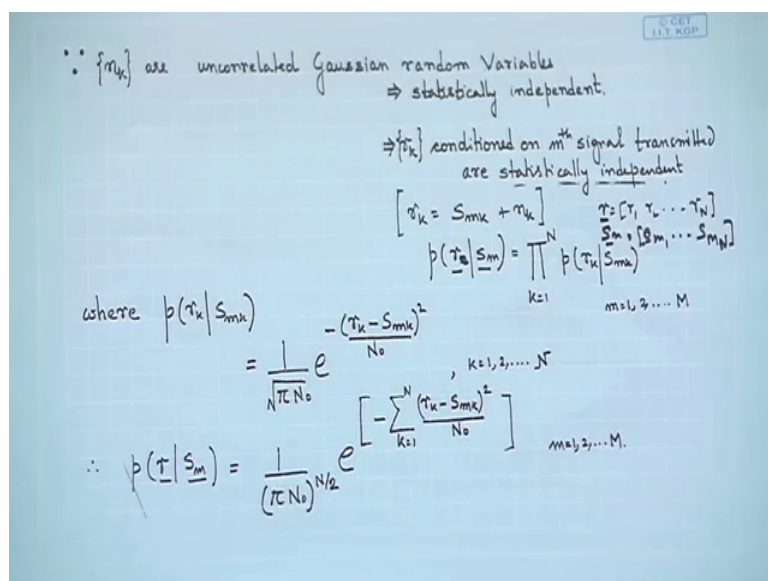 © CET
I.I.T. KGP
∵ {n_k} are uncorrelated Gaussian random Variables
⇒ statistically independent.
⇒ {r_k} conditioned on m^th signal transmitted
are statistically independent
[r_k = S_mk + n_k]  r = [r_1 r_2 ... r_N]
S_m = [S_m1 ... S_mN]
p(r | S_m) = ∏_{k=1}^{N} p(r_k | S_mk)
m=1, 2, .... M
where p(r_k | S_mk)
= 1/√(π N_0) e^{-(r_k - S_mk)^2 / N_0} , k=1, 2, .... N
∴ p(r | S_m) = 1/(π N_0)^{N/2} e^[-∑_{k=1}^{N} (r_k - S_mk)^2 / N_0]  m=1, 2, ... M.